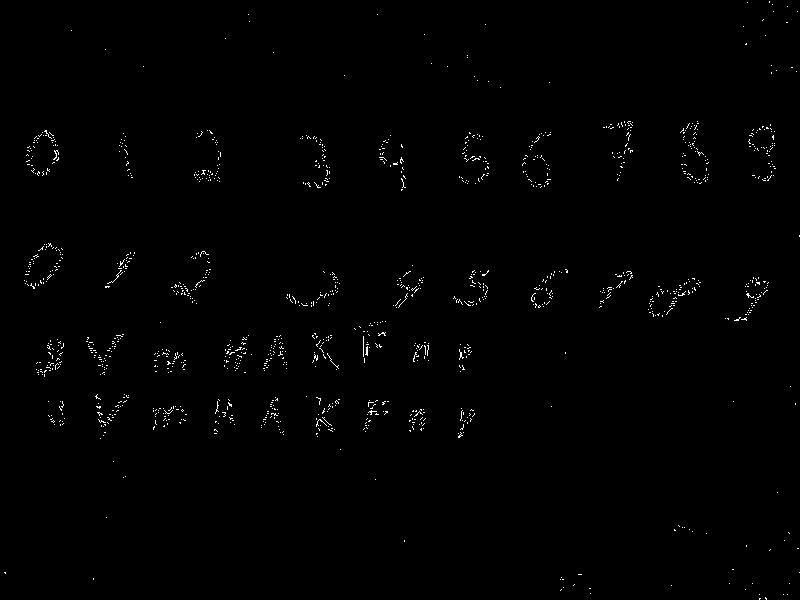 0 1 2 3 4 5 6 7 8 9
0 1 2 3 4 5 6 7 8 9
B V m H A K F n p
V m H A K F n p